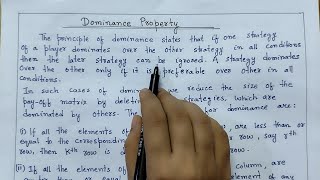 Dominance Property
The principle of dominance states that if one strategy
of a player dominates over the other strategy in all conditions
then the later strategy can be ignored. A strategy dominates
over the other only if it is preferable over other in all
conditions.
In such cases of domin we reduce the size of the
pay-off matrix by delet strategies, which are
dominated by others. The for dominance are:
(i) If all the elements of , are less than or
equal to the correspondin row, say rth
row, then Kth row is
(ii) If all the elements column, are